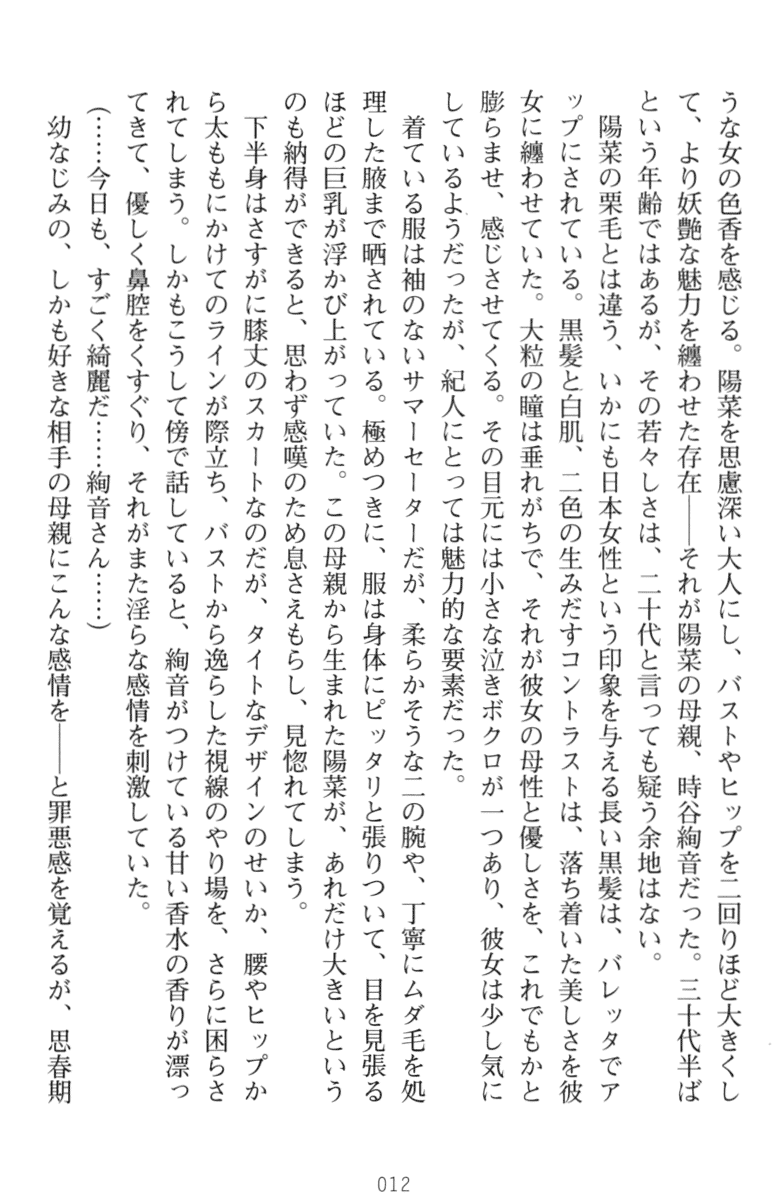 うな女の色香を感じる。陽菜を思慮深い大人にし、バストやヒップを二回りほど大きくし
て、より妖艶な魅力を纏わせた存在――それが陽菜の母親、時谷絢音だった。三十代半ば
という年齢ではあるが、その若々しさは、二十代と言っても疑う余地はない。
陽菜の栗毛とは違う、いかにも日本女性という印象を与える長い黒髪は、バレッタでア
ップにされている。黒髪と白肌、二色の生みだすコントラストは、落ち着いた美しさを彼
女に纏わせていた。大粒の瞳は垂れがちで、それが彼女の母性と優しさを、これでもかと
膨らませ、感じさせてくる。その目元には小さな泣きボクロが一つあり、彼女は少し気に
しているようだったが、紀人にとっては魅力的な要素だった。
着ている服は袖のないサマーセーターだが、柔らかそうな二の腕や、丁寧にムダ毛を処
理した腋まで晒されている。極めつきに、服は身体にピッタリと張りついて、目を見張る
ほどの巨乳が浮かび上がっていた。この母親から生まれた陽菜が、あれだけ大きいという
のも納得ができると、思わず感嘆のため息さえもらし、見惚れてしまう。
下半身はさすがに膝丈のスカートなのだが、タイトなデザインのせいか、腰やヒップか
ら太ももにかけてのラインが際立ち、バストから逸らした視線のやり場を、さらに困らさ
れてしまう。しかもこうして傍で話していると、絢音がつけている甘い香水の香りが漂っ
てきて、優しく鼻腔をくすぐり、それがまた淫らな感情を刺激していた。
(……今日も、すごく綺麗だ……絢音さん……)
幼なじみの、しかも好きな相手の母親にこんな感情を――と罪悪感を覚えるが、思春期
012